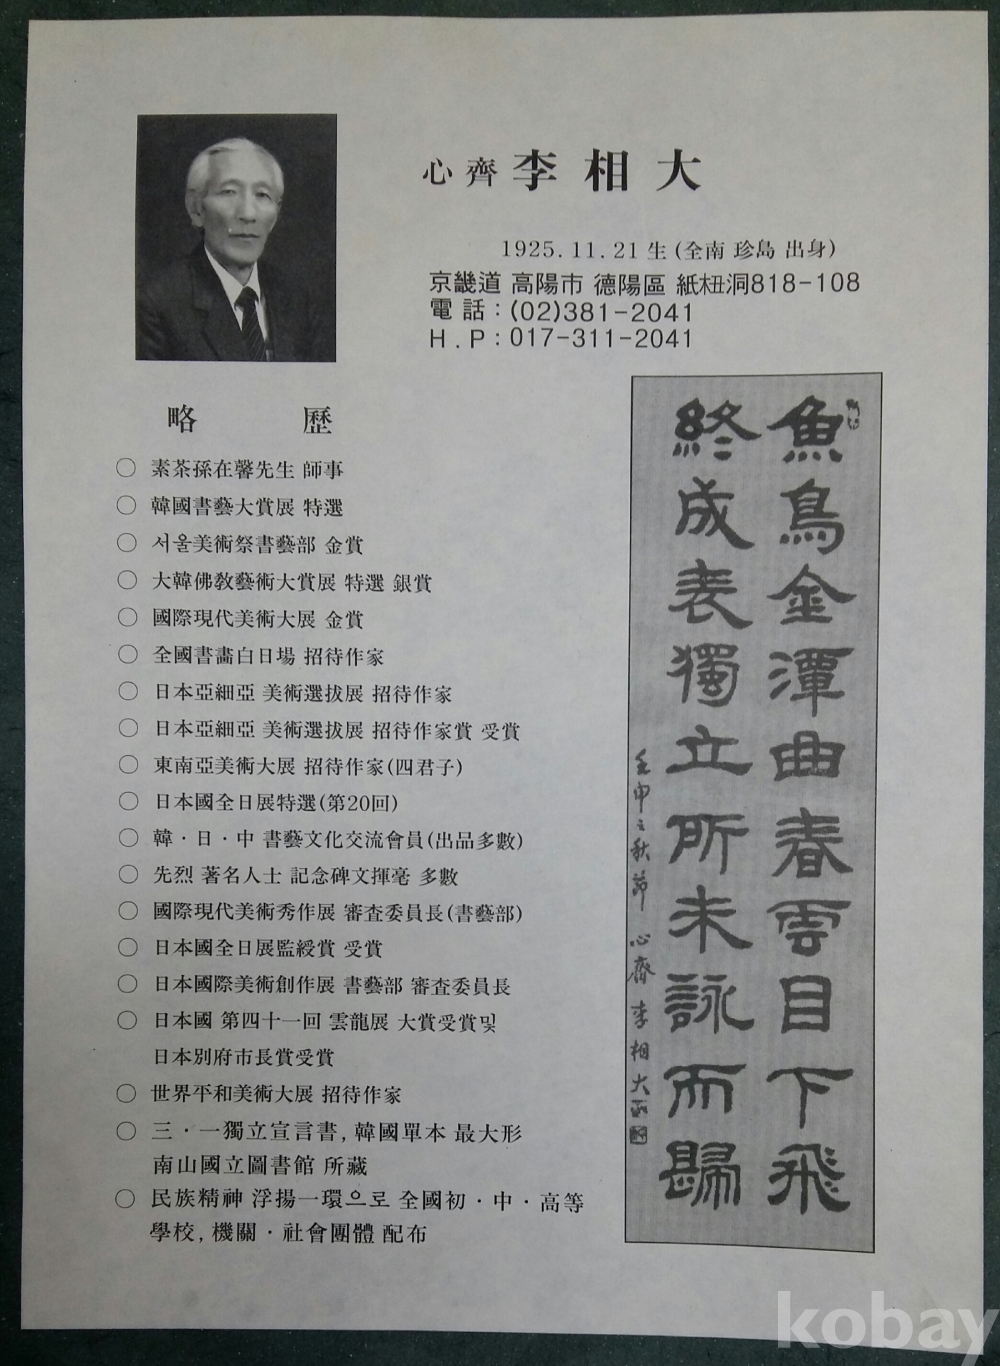 心齊 李相大
1925.11.21 生 (全南 珍島 出身)
京畿道 高陽市 德陽區 紙杻洞818-108
電話 : (02)381-2041
H.P : 017-311-2041
略歷
○ 素茶孫在馨先生 師事
○ 韓國書藝大賞展 特選
○ 서울美術祭書藝部 金賞
○ 大韓佛敎藝術大賞展 特選 銀賞
○ 國際現代美術大展 金賞
○ 全國書畵白日場 招待作家
○ 日本亞細亞 美術選拔展 招待作家
○ 日本亞細亞 美術選拔展 招待作家賞 受賞
○ 東南亞美術大展 招待作家(四君子)
○ 日本國全日展特選(第20回)
○ 韓·日·中 書藝文化交流會員(出品多數)
○ 先烈 著名人士 記念碑文揮毫 多數
○ 國際現代美術秀作展 審査委員長(書藝部)
○ 日本國全日展監綬賞 受賞
○ 日本國際美術創作展 書藝部 審査委員長
○ 日本國 第四十一回 雲龍展 大賞受賞및
日本別府市長賞受賞
○ 世界平和美術大展 招待作家
○ 三·一獨立宣言書, 韓國單本 最大形
南山國立圖書館 所藏
○ 民族精神 浮揚一環으로 全國初·中·高等
學校, 機關·社會團體 配布
魚鳥金潭曲春雲目下飛
終成表獨立所未詠而歸
壬申之秋節 心齊 李相大
kobay